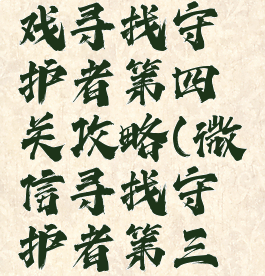 戏寻找守
护者第四
关攻略(微
信寻找守
护者第三